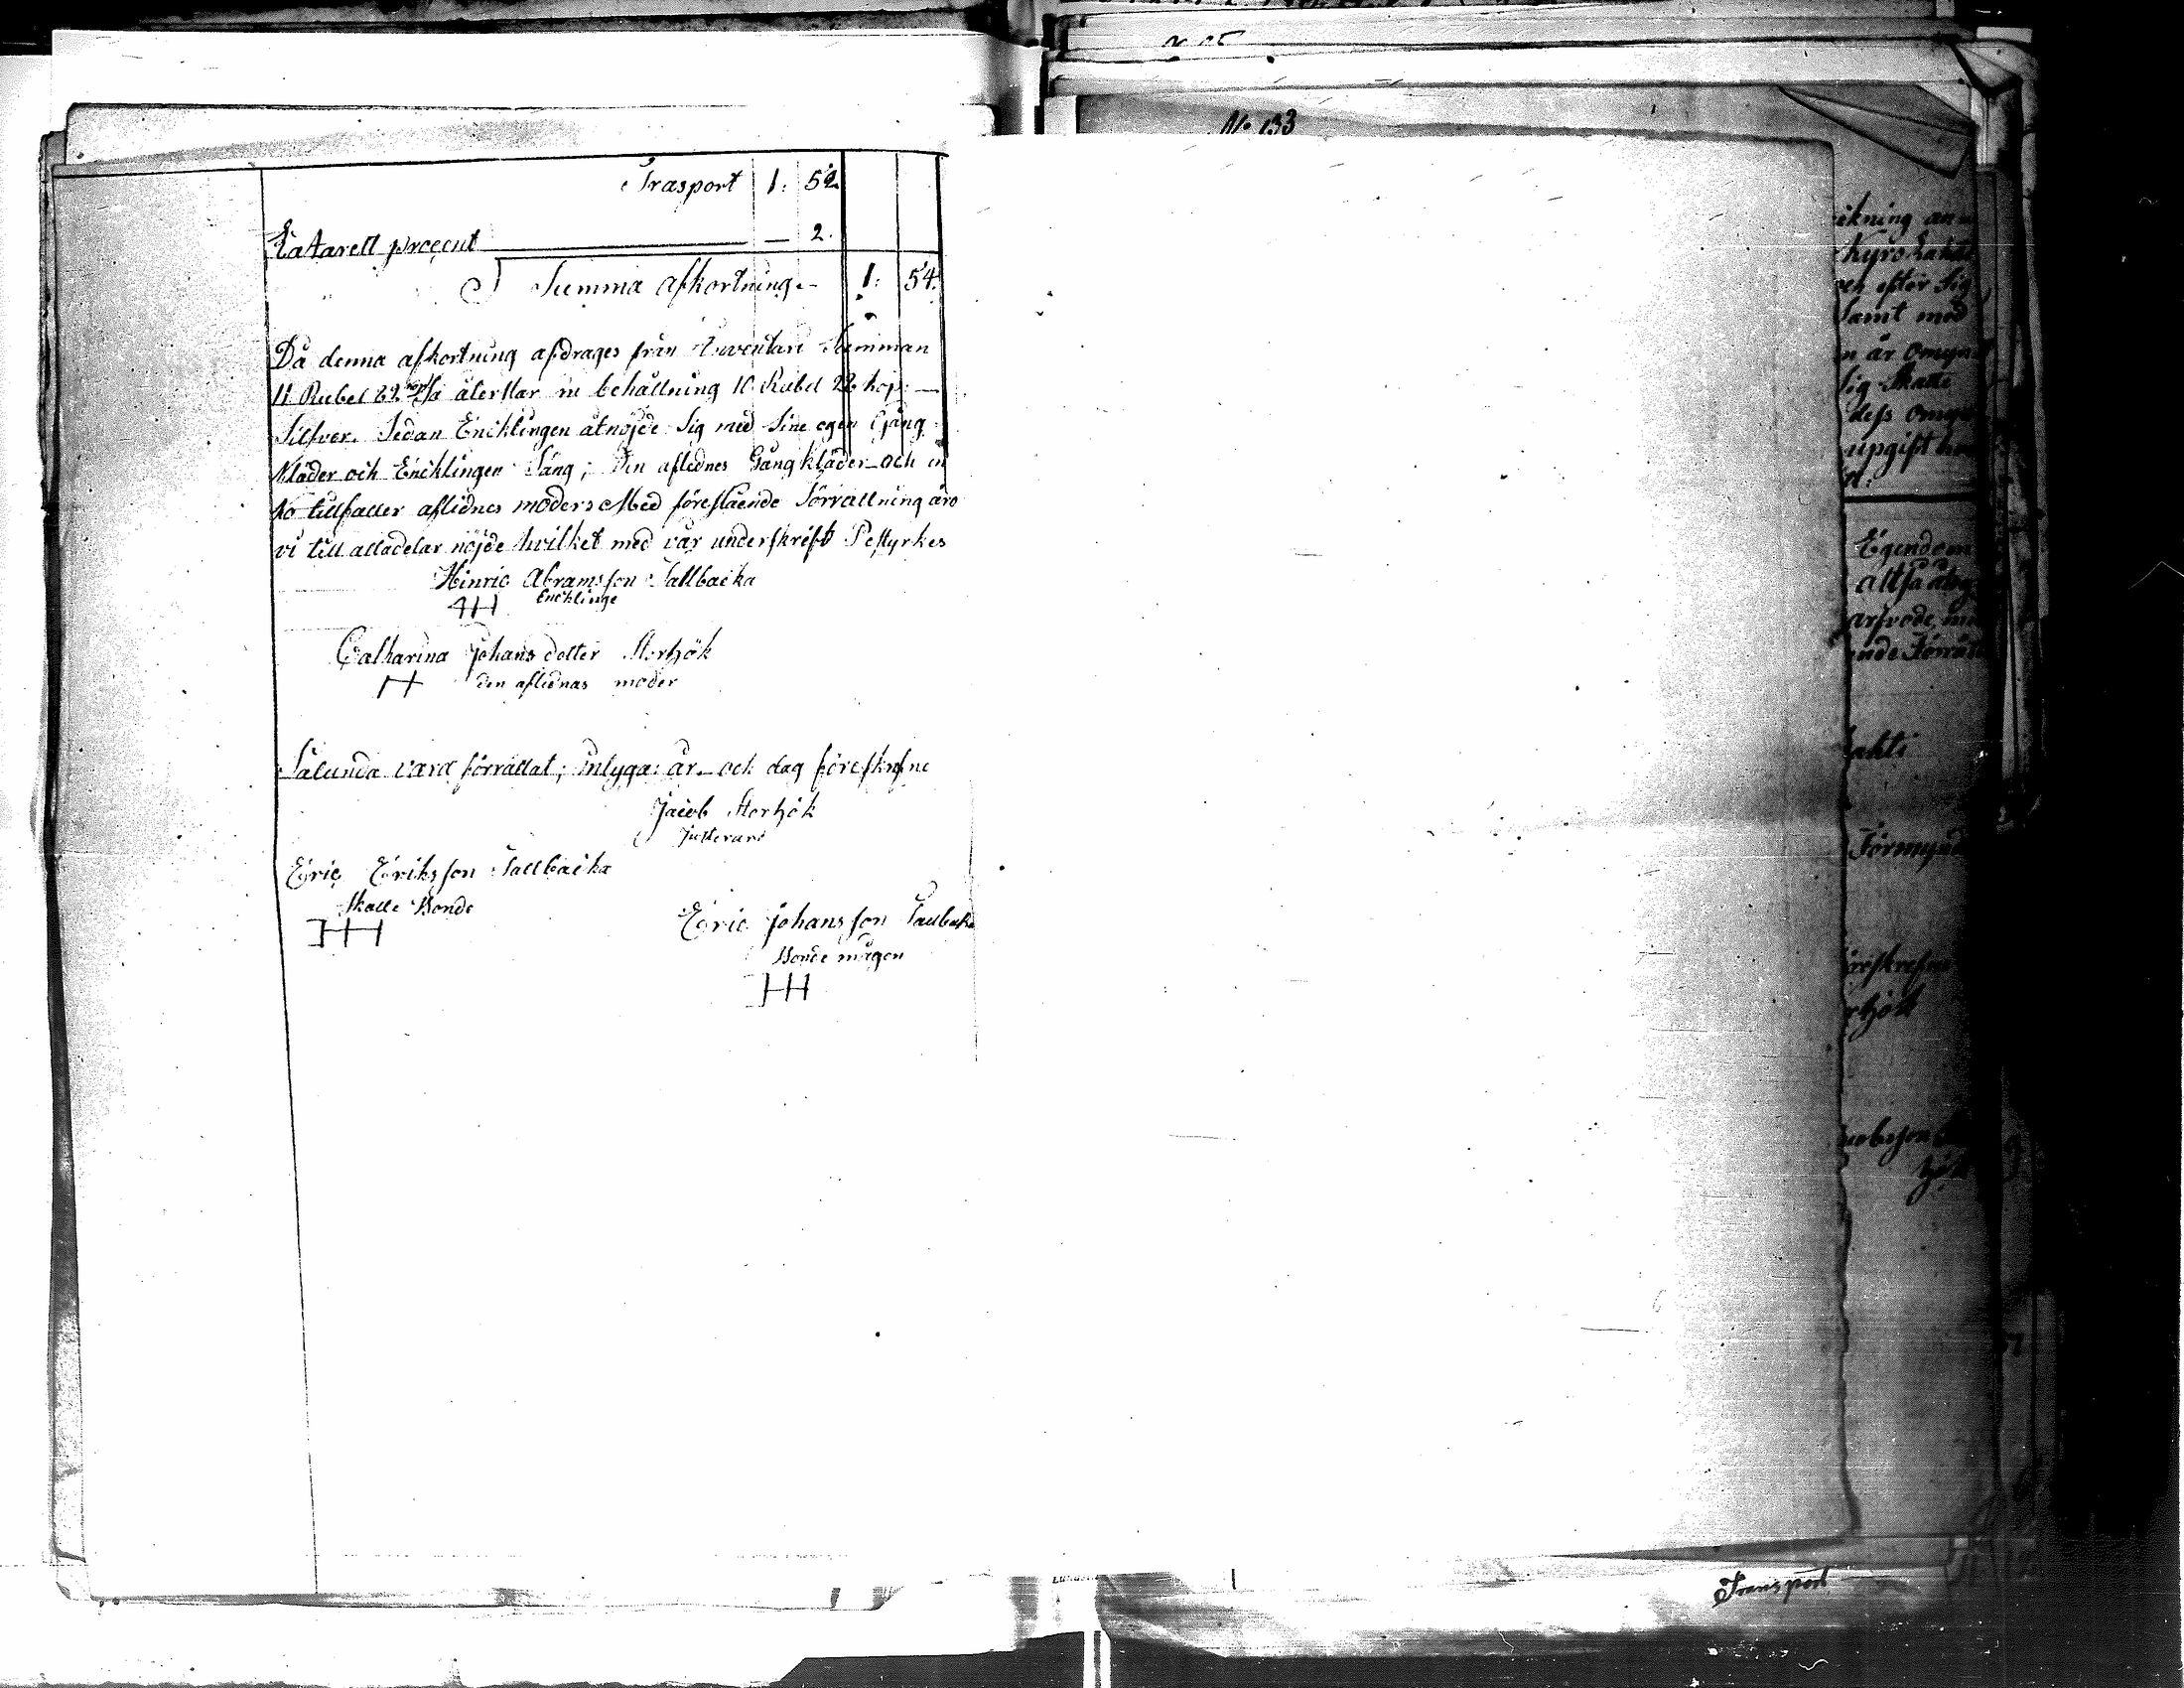 Trasport 1: 52.
Fatarell procent — 2.
Summa afkortning. 1: 54.
Då denna afkortning afdrages från Inventarii Summan
11 Rubel 82 kop så återstar en behållning 10 Rubel 28 kop: —
Silfver. Sedan Encklingen åtnöjde Sig med Sine egen Gång
Kläder och Encklingen Säng; Den aflednes Gångkläder och en
Ko tillfaller aflidnes moders Med föreståënde Förrattning äro
vi till alladelar nöjde hvilket med vår underskrift Pestyrkes
Hinric Abramsson Tallbacka
Encklinge
Catharina Johans dotter Storhök
den aflidnas moder
Sålunda vara förrättat; intyga: år och dag föreskrefne
Jacob Storhök
Eric Eriksson Tallbacka
Skatte Bonde
Eric Johansson Tallbacka
Bonde mågen
No 133
ikning
och efter Sig
Samt med
är omyn
Sig Skatte
dess omyn
upgift
Egendom
altså
arfvode
Förmyn
örskrefne
rhök
Transport